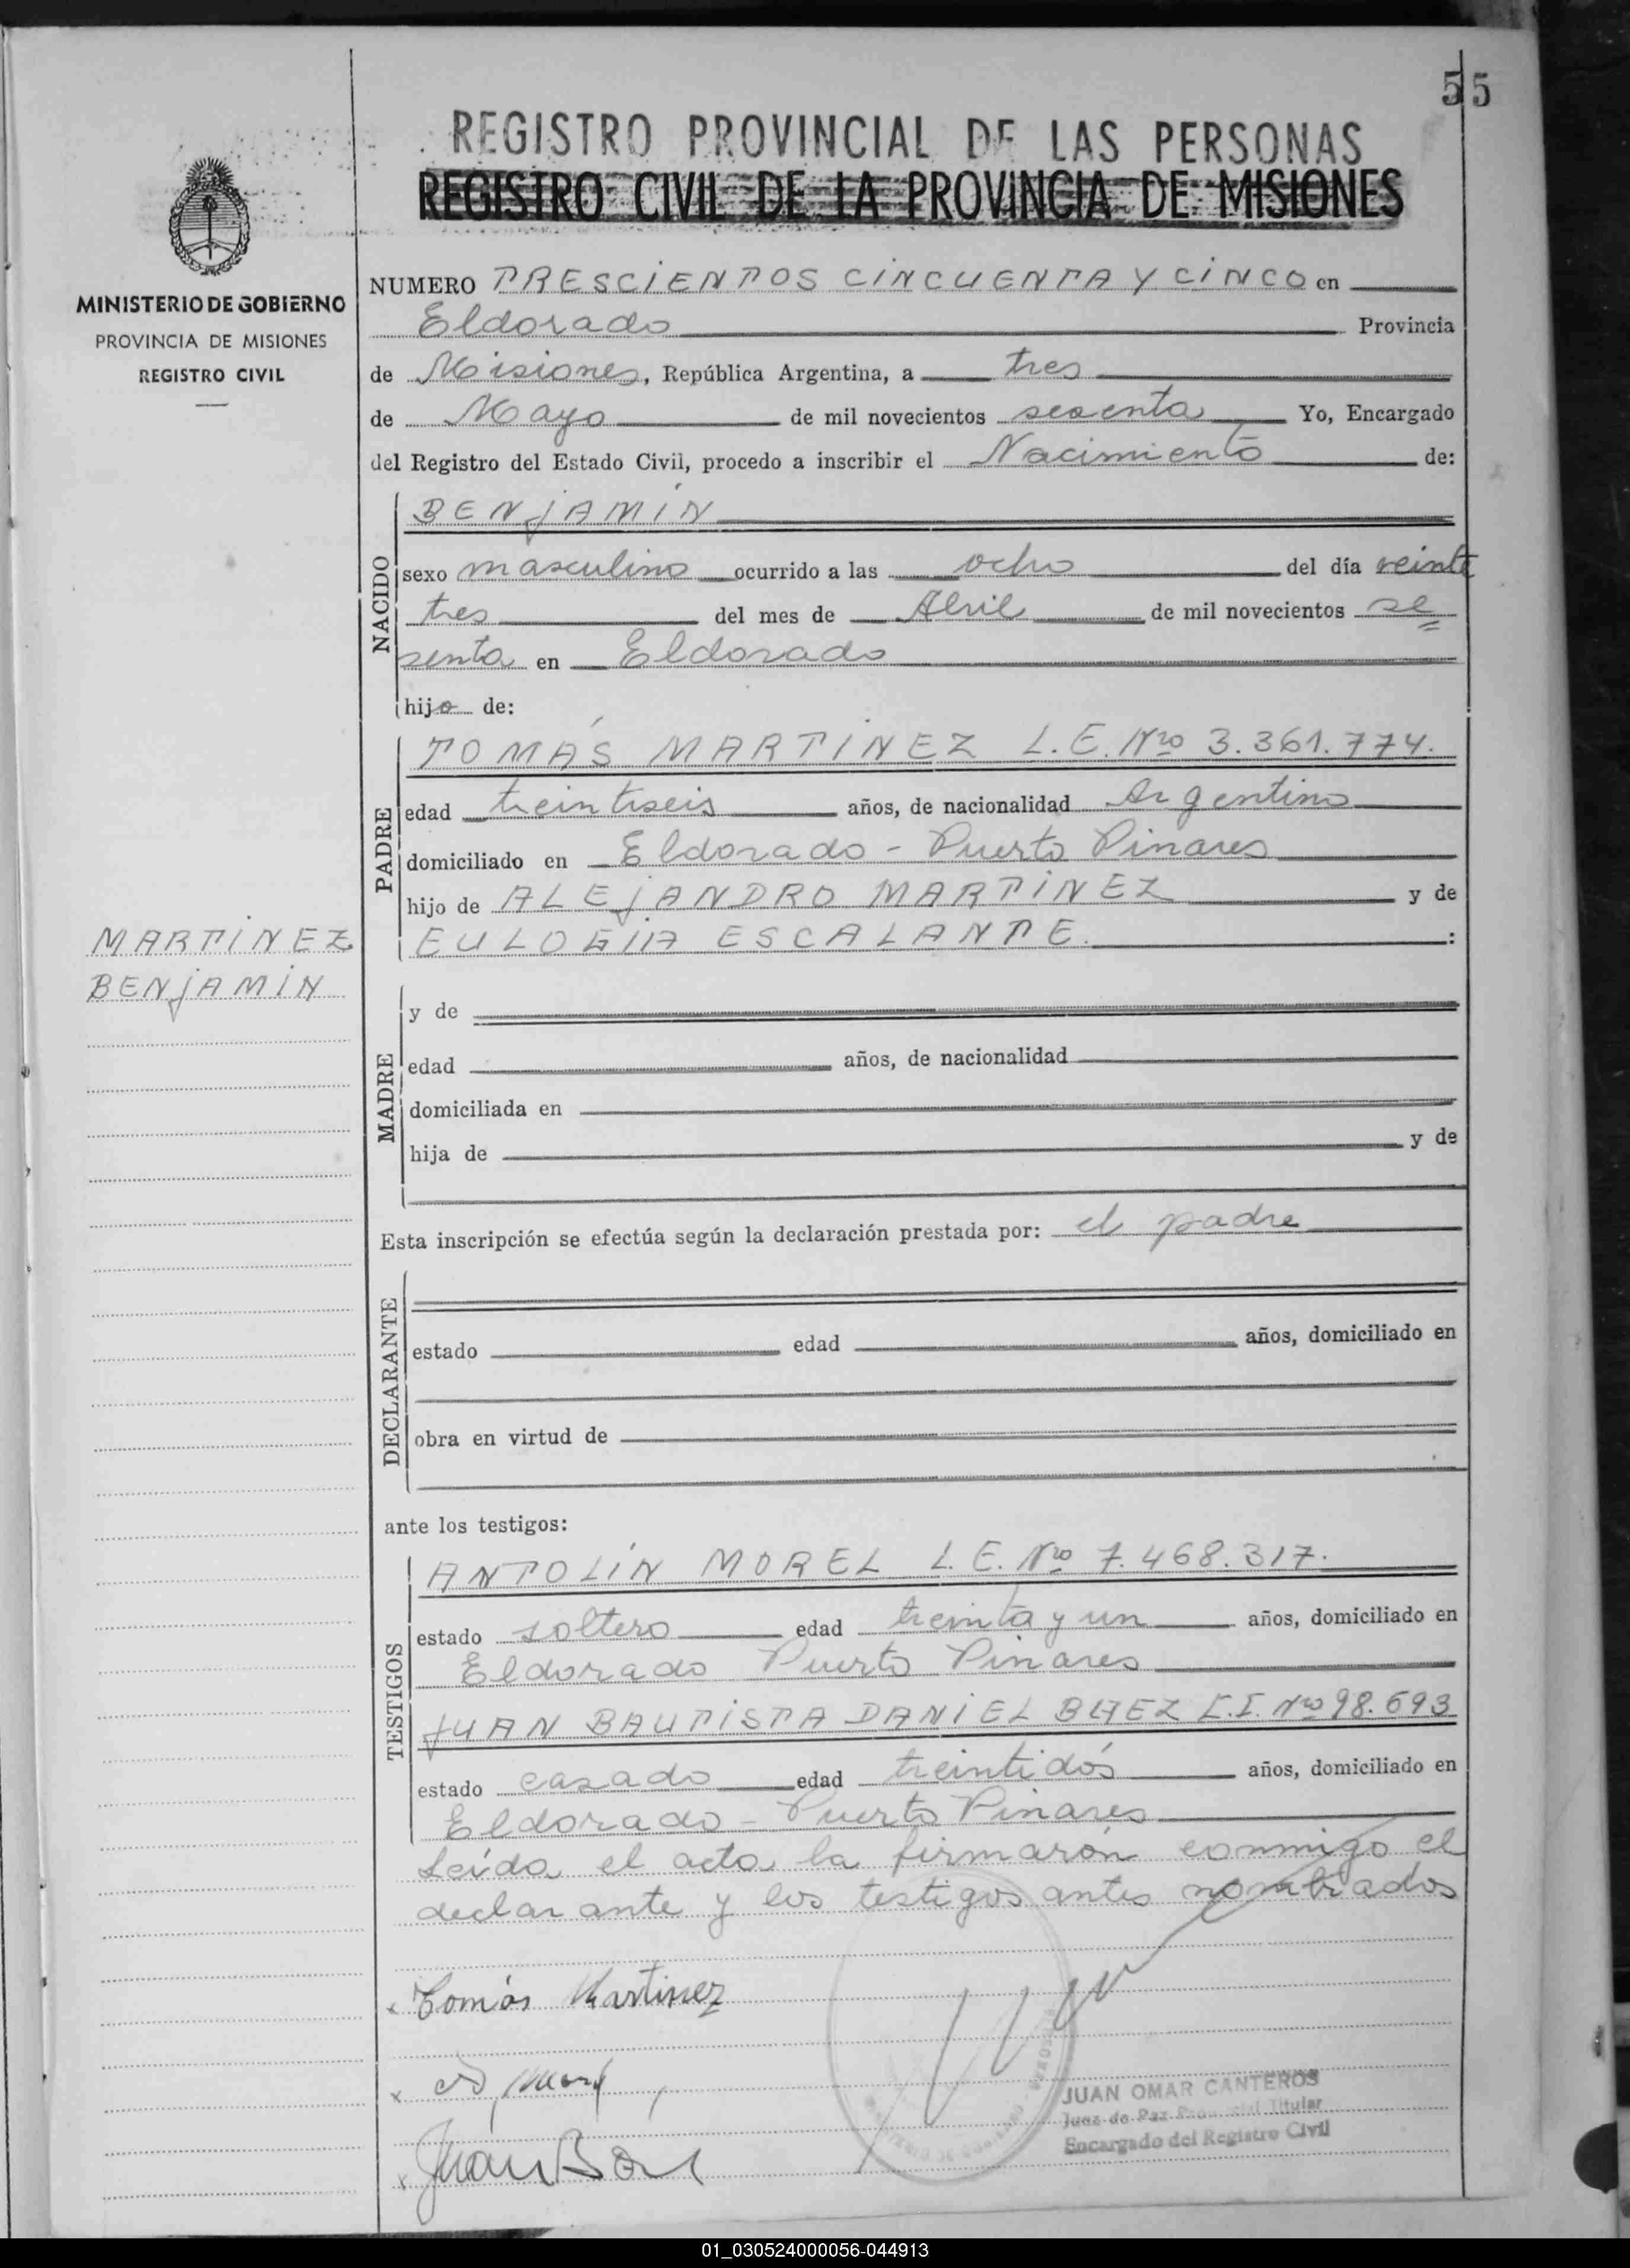 55
REGISTRO PROVINCIAL DE LAS PERSONAS
REGISTRO CIVIL DE LA PROVINCIA DE MISIONES
MINISTERIO DE GOBIERNO
PROVINCIA DE MISIONES
REGISTRO CIVIL
NUMERO TRESCIENTOS CINCUENTA Y CINCO en
Eldorado Provincia
de Misiones, República Argentina, a tres
de Mayo de mil novecientos sesenta Yo, Encargado
del Registro del Estado Civil, procedo a inscribir el Nacimiento de:
NACIDO
BENJAMÍN
sexo masculino ocurrido a las ocho del día veinte
tres del mes de Abril de mil novecientos se
senta en Eldorado
hijo de:
PADRE
TOMÁS MARTINEZ L.E. Nro 3.361.774.
edad treintiseis años, de nacionalidad Argentino
domiciliado en Eldorado - Puerto Pinares
hijo de ALEJANDRO MARTINEZ y de
EULOGIA ESCALANTE. :
MARTINEZ
BENJAMIN
MADRE
y de
edad años, de nacionalidad
domiciliada en
hija de y de
Esta inscripción se efectúa según la declaración prestada por: el padre
DECLARANTE
estado edad años, domiciliado en
obra en virtud de
ante los testigos:
TESTIGOS
ANTOLÍN MOREL L.E. Nro 7.468.317.
estado soltero edad treinta y un años, domiciliado en
Eldorado Puerto Pinares
JUAN BAUTISTA DANIEL BAEZ C.I. Nro 98.693
estado casado edad treintidós años, domiciliado en
Eldorado - Puerto Pinares
Leída el acta la firmarón conmigo el
declarante y los testigos antes nombrados
x Tomás Martinez
x
x Juan B
JUAN OMAR CANTEROS
Juez de Paz Titular
Encargado del Registro Civil
01_030524000056-044913